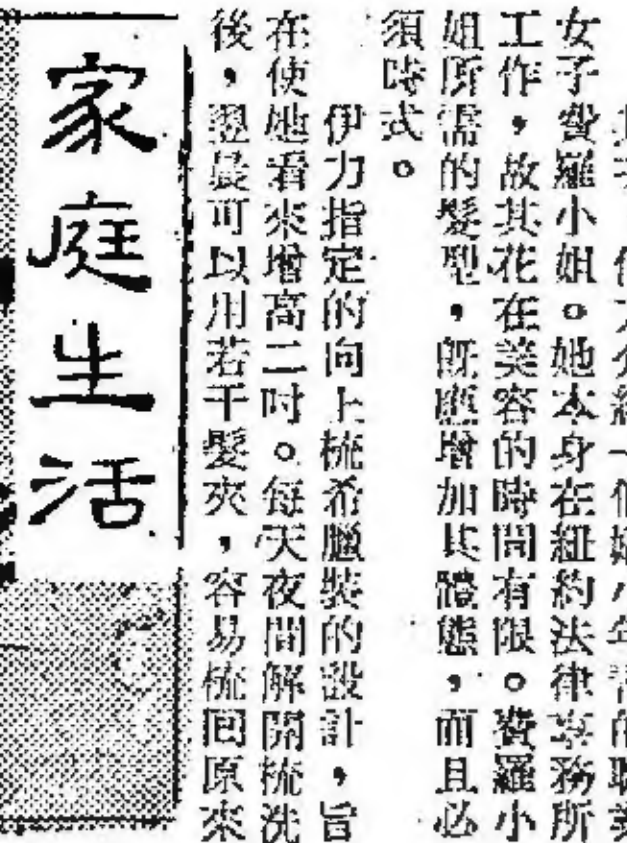 女子費羅小姐。她本身在紐約法律事務所
工作，故其花在美容的時間有限。費羅小
姐所需的髮型，旣應增加其體態，而且必
須時式。
伊力指定的向上梳希臘裝的設計，旨
在使她看來增高二吋。每天夜間解開梳洗
後，翌晨可以用若干髮夾，容易梳回原來
家庭生活